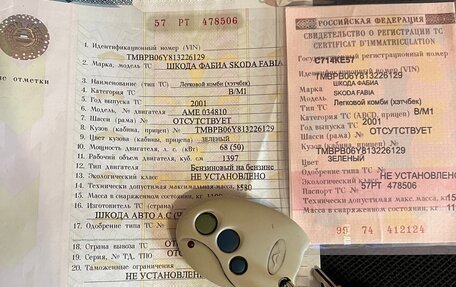 57 РТ 478506
1. Идентификационный номер (VIN)
TMBPB06Y813226129
2. Марка, модель ТС ШКОДА ФАБИА SKODA FABIA
3. Наименование (тип ТС) Легковой комби (хэтчбек)
4. Категория ТС В/М1
5. Год выпуска ТС 2001
6. Модель, № двигателя AME 034810
7. Шасси (рама) № ОТСУТСТВУЕТ
8. Кузов (кабина, прицеп) № TMBPB06Y813226129
9. Цвет кузова (кабины, прицепа) зеленый
10. Мощность двигателя, л. с. (кВт) 68 (50)
11. Рабочий объем двигателя, куб. см 1397
12. Тип двигателя Бензиновый на бензине
13. Экологический класс НЕ УСТАНОВЛЕНО
14. Технически допустимая максимальная масса
15. Масса в снаряженном состоянии, кг
16. Изготовитель ТС (страна)
ШКОДА АВТО А.С.
17. Одобрение типа ТС №
18. Страна вывоза ТС
19. Серия, № ТД, ТПО
20. Таможенные ограничения
отметки
РОССИЙСКАЯ ФЕДЕРАЦИЯ
СВИДЕТЕЛЬСТВО О РЕГИСТРАЦИИ ТС
CERTIFICAT D'IMMATRICULATION
Регистрационный номер
С714КЕ57
Идентификационный номер (VIN)
TMBPB06Y813226129
Марка ШКОДА ФАБИА
Модель SKODA FABIA
Тип ТС Легковой комби (хэтчбек)
Категория ТС (ABCD, прицеп) В/М1
Год выпуска ТС 2001
Шасси № ОТСУТСТВУЕТ
Кузов (кабина, прицеп) №
TMBPB06Y813226129
Цвет ЗЕЛЕНЫЙ
Экологический класс НЕ УСТАНОВЛЕНО
Паспорт ТС 57РТ 478506
Технически допустимая макс. масса
Масса в снаряженном состоянии, кг
99 74 412124